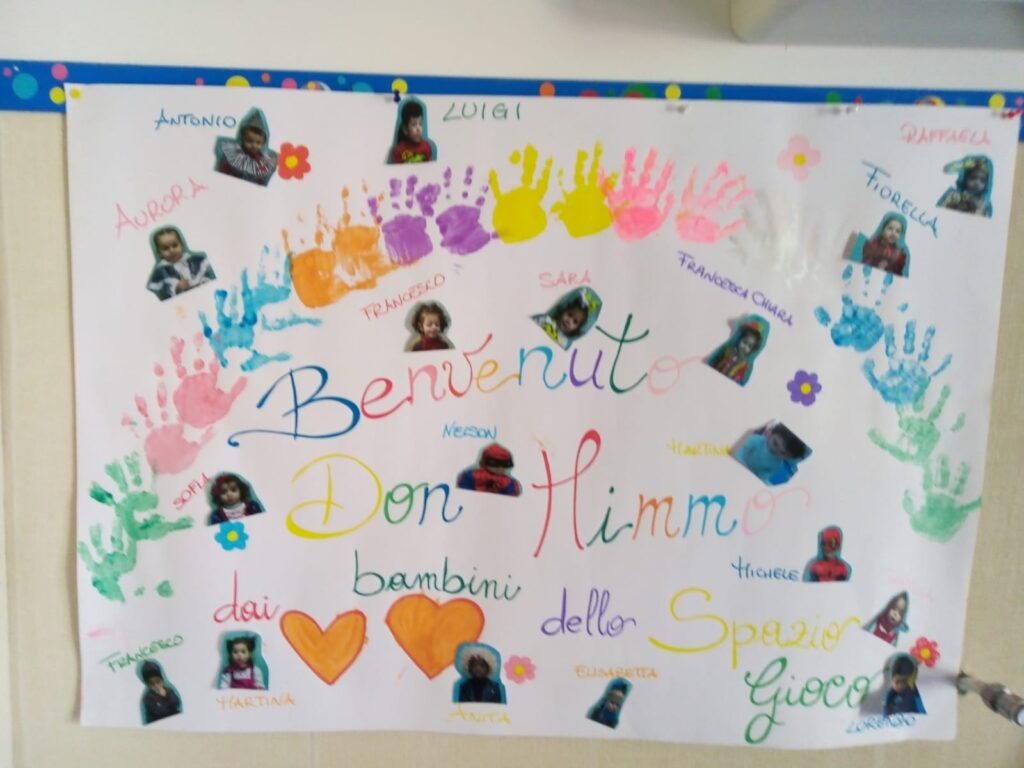 ANTONIO
LUIGI
RAFFAELA
AURORA
FIORELLA
FRANCESCO
SARA
FRANCESCA CHIARA
Benvenuto
NELSON
MARTINA
SOFIA
Don Mimmo
MICHELE
dai bambini dello Spazio
Gioco
FRANCESCO
MARTINA
ANITA
ELISABETTA
LORENZO